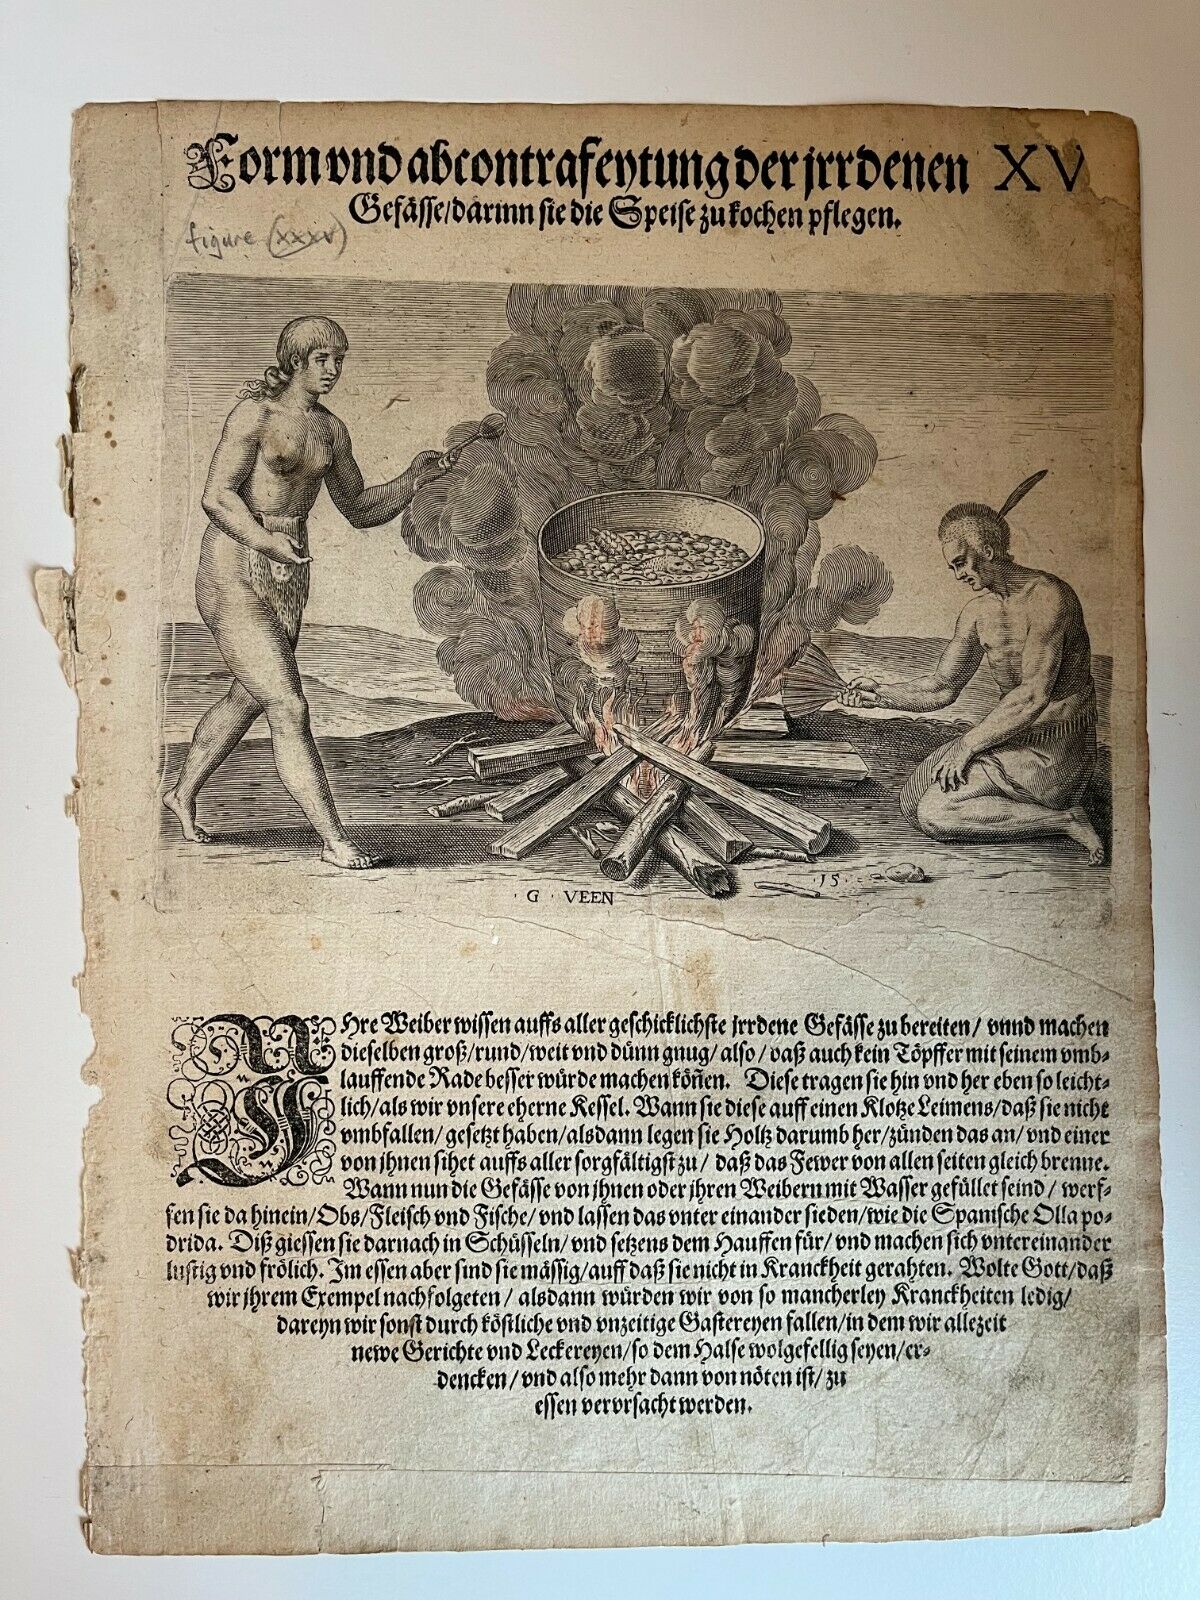 Form vnd abcontrafeytung der jrrdenen XV
Gefässe/darinn sie die Speise zu kochen pflegen.
figure (xxxv)
· G · VEEN
· 15 ·
IHre Weiber wissen auffs aller geschicklichste jrrdene Gefässe zu bereiten / vnnd machen
dieselben groß/rund/weit vnd dünn gnug/ also / daß auch kein Töpffer mit seinem vmb-
lauffende Rade besser würde machen köñen. Diese tragen sie hin vnd her eben so leicht-
lich/als wir vnsere eherne Kessel. Wann sie diese auff einen Klotze Leimens/daß sie nicht
vmbfallen/ gesetzt haben/alsdann legen sie Holtz darumb her/zünden das an/ vnd einer
von jhnen sihet auffs aller sorgfältigst zu/ daß das Fewer von allen seiten gleich brenne.
Wann nun die Gefässe von jhnen oder jhren Weibern mit Wasser gefüllet seind / werf-
fen sie da hinein/Obs/Fleisch vnd Fische/vnd lassen das vnter einander sieden/wie die Spanische Olla po-
drida. Diß giessen sie darnach in Schüsseln/vnd setzens dem Hauffen für/vnd machen sich vntereinander
lustig vnd frölich. Im essen aber sind sie mässig/auff daß sie nicht in Kranckheit gerahten. Wolte Gott/daß
wir jhrem Exempel nachfolgeten / alsdann würden wir von so mancherley Kranckheiten ledig/
dareyn wir sonst durch köstliche vnd vnzeitige Gastereyen fallen/in dem wir allezeit
newe Gerichte vnd Leckereyen/so dem Halse wolgefellig seyen/er-
dencken / vnd also mehr dann von nöten ist/ zu
essen vervrsacht werden.